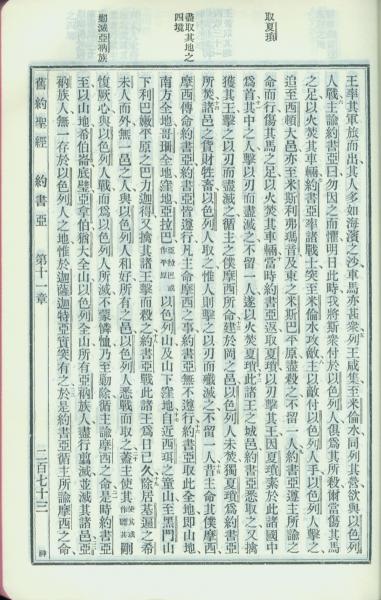 取夏瑣
盡取其地之
四境
勦滅亞衲族
王率其軍旅而出其人多如海濱之沙車馬亦甚衆列王咸集至米倫水同列其營欲與以色列
人戰主諭約書亞曰勿因之而懼明日此時我將斯衆付於以色列人俱爲其所殺爾當傷其馬
之足以火焚其車輛約書亞率諸戰士突至米倫水攻敵主以敵付以色列人手以色列人擊之
追至西頓大邑亦至米斯利弗瑪音及東之米斯巴平原盡殺之不留一人約書亞遵主所諭之
命而行傷其馬之足以火焚其車輛當時約書亞返取夏瑣以刃擊其王因夏瑣素於此諸國中
爲首其中之人擊以刃而盡滅之不留一人遂以火焚夏瑣此諸王之城邑約書亞悉取之又擒
獲其王擊以刃而盡滅之循主之僕摩西所命建於岡之邑以色列人未焚獨夏瑣爲約書亞
所焚諸邑之貨財牲畜以色列人取之惟人則擊以刃而殲滅之不留一人昔主命其僕摩西
摩西傳命約書亞約書亞皆遵行凡主命摩西之事約書亞無不遵行約書亞取此全地即山地
南方全地哥珊全地窪地亞拉巴亞拉巴或作平原以色列山及山下窪地自至西珥之童山至黑門山
下利巴嫩平原之巴力迦得又擒其諸王擊而殺之約書亞戰此諸王爲日已久除居基遍之希
未人而外無一邑之人與以色列人和好所有之邑以色列人悉戰而取之蓋主使其使其或作聽其剛
愎厥心與以色列人戰而爲以色列人所滅不蒙憐恤乃至勦除循主諭摩西之命是時約書亞
至以山地希伯崙底璧亞拿伯猶大全山以色列全山所有亞衲族人盡行翦滅並滅其諸邑亞
衲族人無一存於以色列人之地惟於迦薩迦特亞實突有之於是約書亞循主所諭摩西之命
舊約聖經 約書亞 第十一章 二百七十三